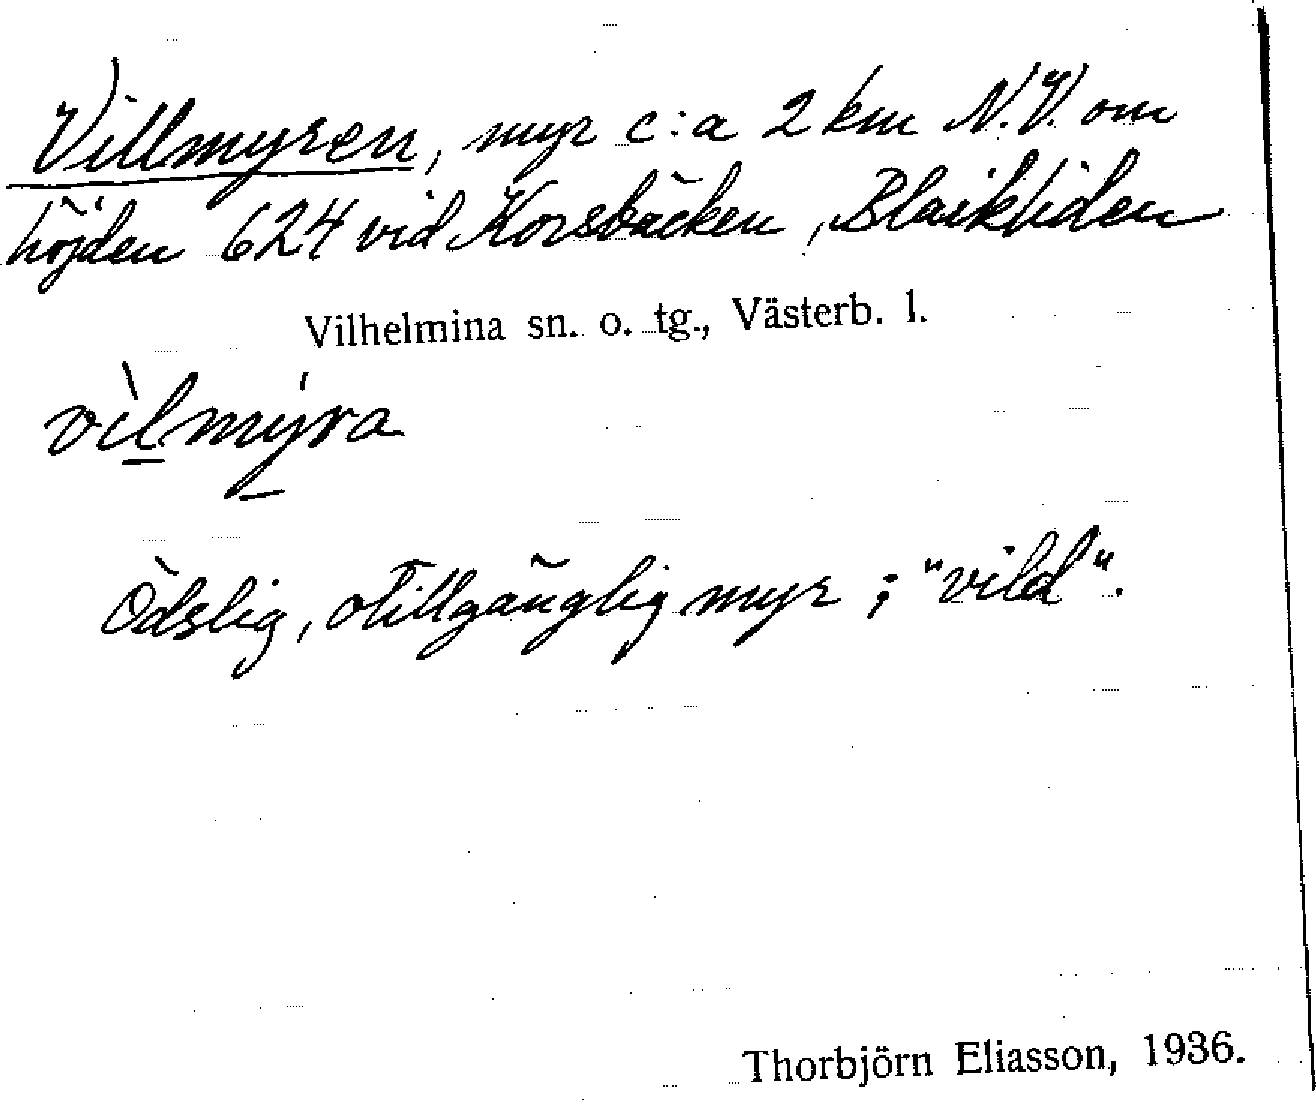 Villmyren, myr c:a 2 km N.V. om
höjden 624 vid Korsbäcken, Blaikliden
Vilhelmina sn. o. tg., Västerb. l.
vìlmýra
Ödslig, otillgänglig myr; "vild".
Thorbjörn Eliasson, 1936.